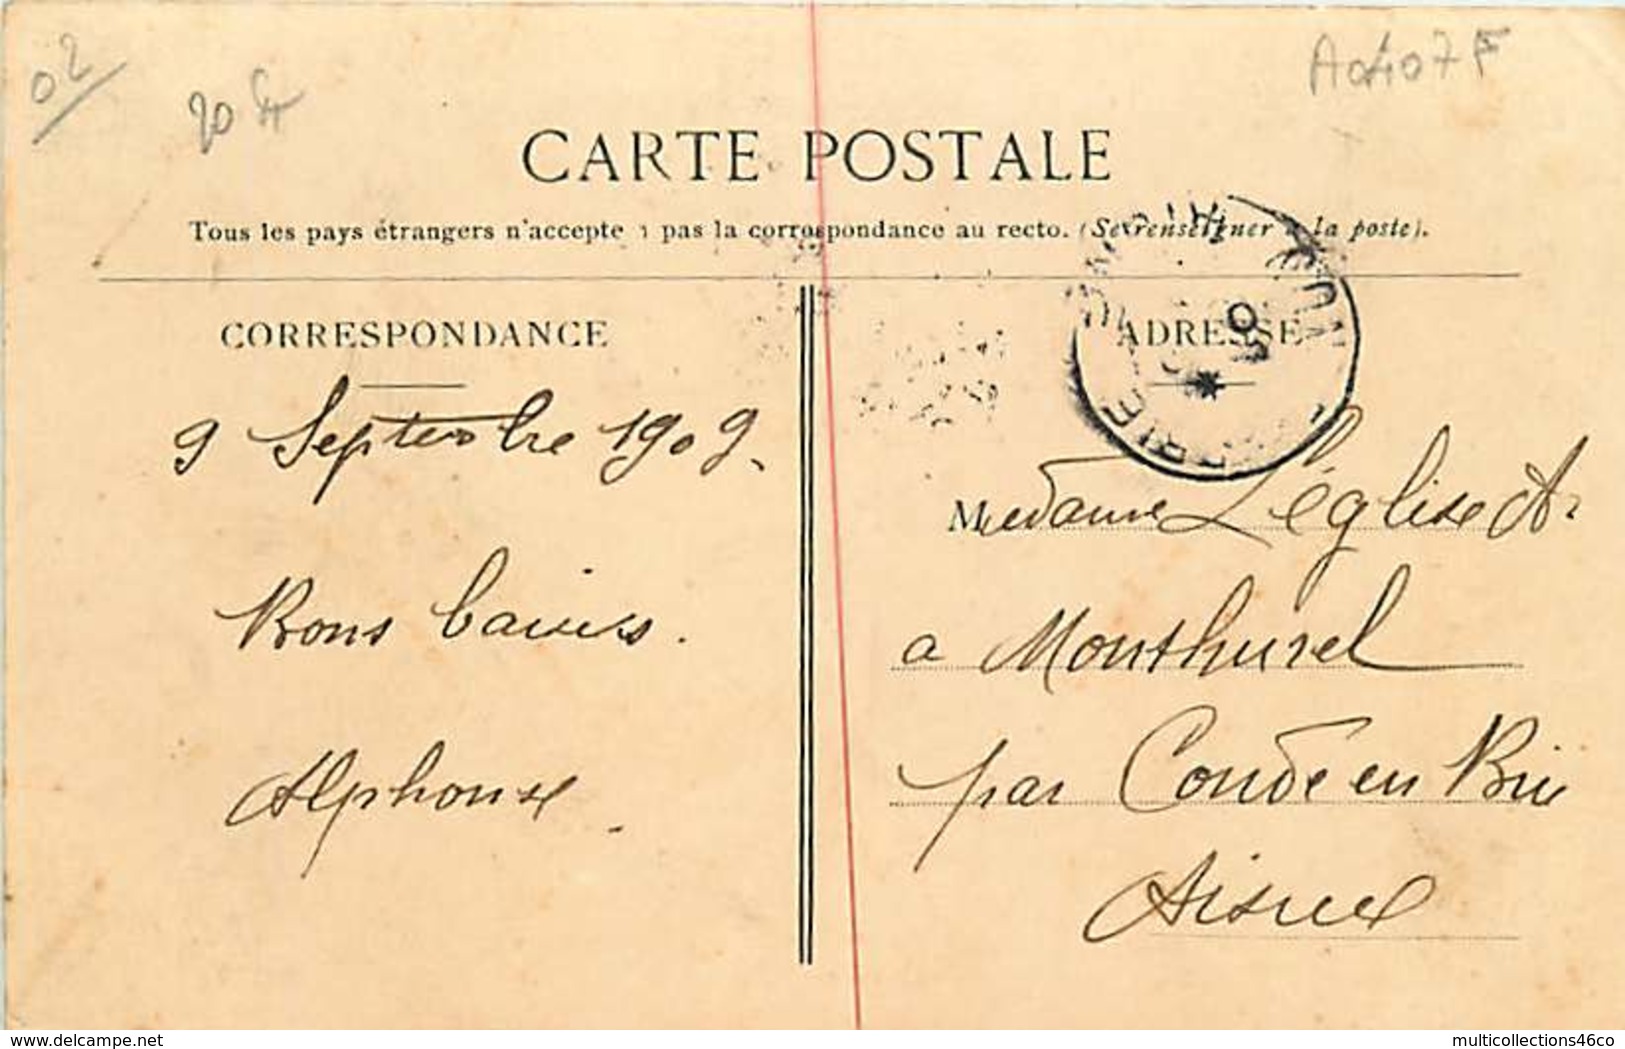 02
20 fr
A0407F
CARTE POSTALE
Tous les pays étrangers n'accepte t pas la correspondance au recto. (Se renseigner à la poste).
CORRESPONDANCE
ADRESSE
9 Septembre 1909.
Bons baisers.
Alphonse.
Madame Léglise A.
a Monthurel
par Condé en Brie
Aisne
delcampe.net
multicollections46co